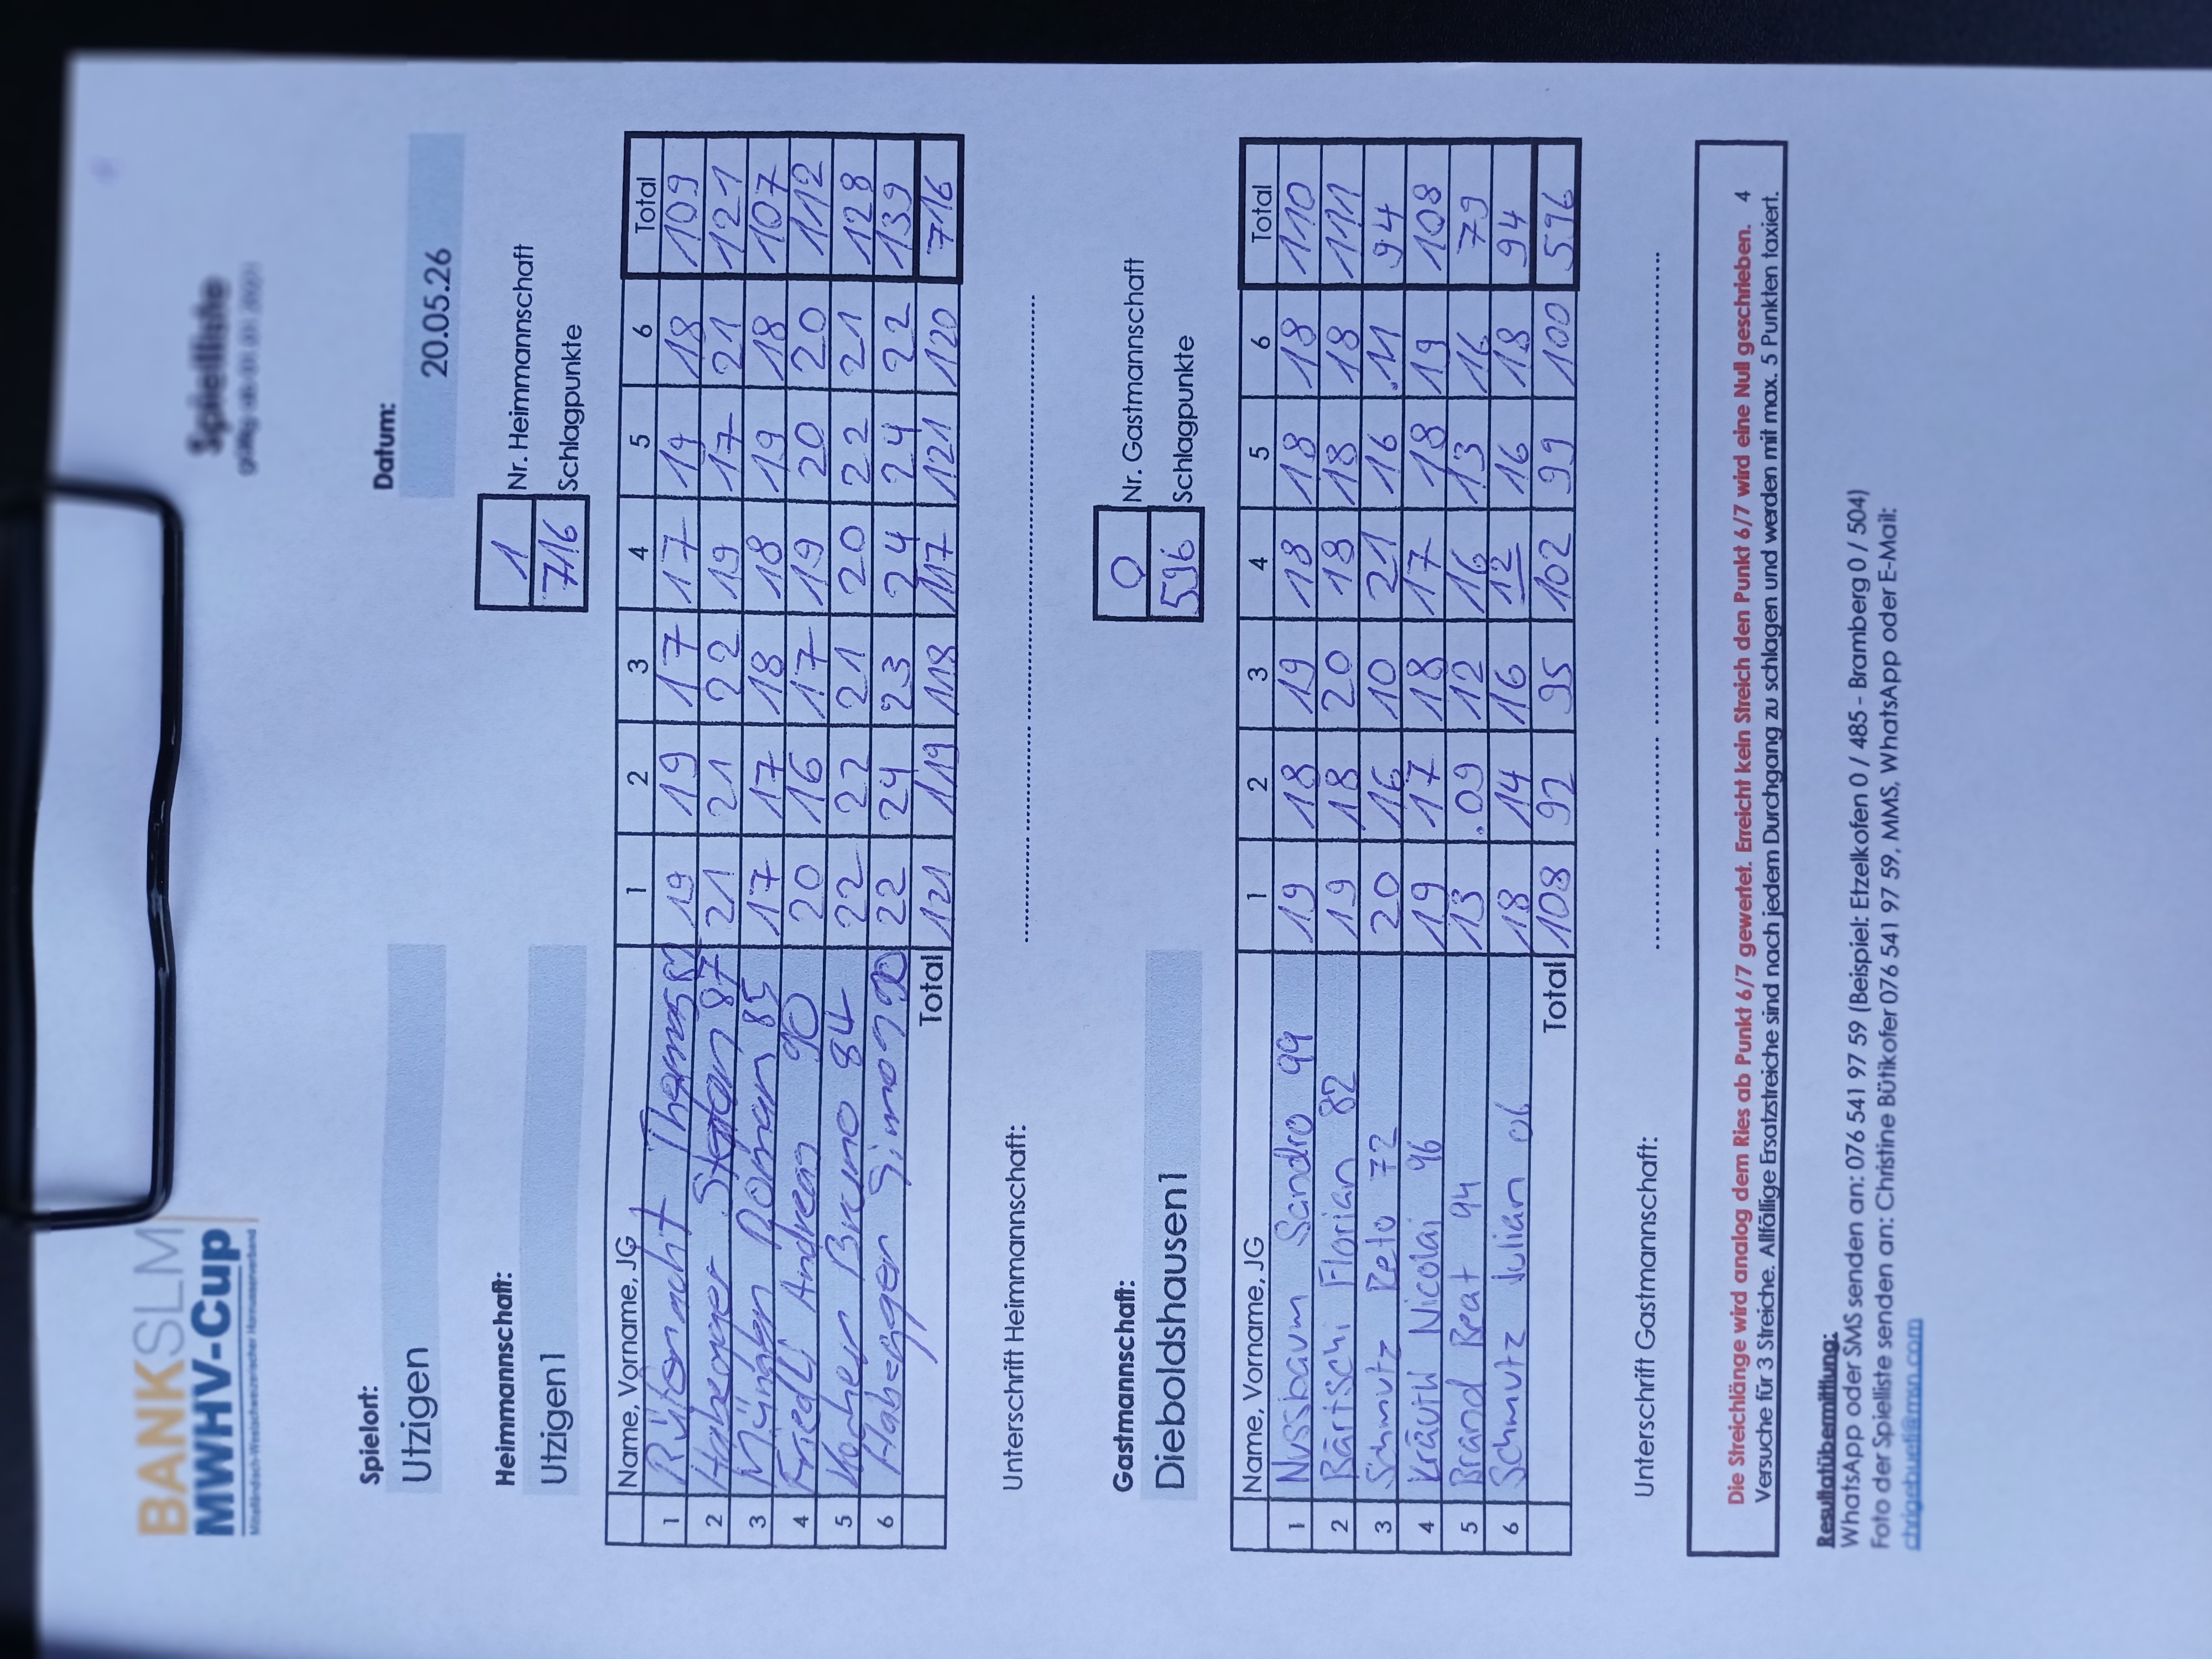 BANKSLM
MWHV-Cup
Mittelländisch-Westschweizerischer Hornusserverband
Spielliste
Spielort:
Datum:
Utzigen
20.05.26
Heimmannschaft:
1 Nr. Heimmannschaft
Utzigen1
716 Schlagpunkte
Name, Vorname, JG 1 2 3 4 5 6 Total
1 Thomas 19 19 17 17 19 18 109
2 Habegger Stefan 87 21 21 22 19 17 21 121
3 Roman 85 17 17 18 18 19 18 107
4 Friedli Andreas 90 20 16 17 19 20 20 112
5 Kocher Bruno 84 22 22 21 20 22 21 128
6 Habegger Simon 90 22 24 23 24 24 22 139
Total 121 119 118 117 121 120 716
Unterschrift Heimmannschaft:
Gastmannschaft:
0 Nr. Gastmannschaft
Dieboldshausen1
596 Schlagpunkte
Name, Vorname, JG 1 2 3 4 5 6 Total
1 Nussbaum Sandro 99 19 18 19 18 18 18 110
2 Bärtschi Florian 82 19 18 20 18 18 18 111
3 Schmutz Reto 72 20 16 10 21 16 .11 94
4 Kräuth Nicolai 96 19 17 18 17 18 19 108
5 Brand Beat 94 13 .09 12 16 13 16 79
6 Schmutz Julian 06 18 14 16 12 16 18 94
Total 108 92 95 102 99 100 596
Unterschrift Gastmannschaft:
Die Streichlänge wird analog dem Ries ab Punkt 6/7 gewertet. Erreicht kein Streich den Punkt 6/7 wird eine Null geschrieben. 4
Versuche für 3 Streiche. Allfällige Ersatzstreiche sind nach jedem Durchgang zu schlagen und werden mit max. 5 Punkten taxiert.
Resultatübermittlung:
WhatsApp oder SMS senden an: 076 541 97 59 (Beispiel: Etzelkofen 0 / 485 - Bramberg 0 / 504)
Foto der Spielliste senden an: Christine Bütikofer 076 541 97 59, MMS, WhatsApp oder E-Mail:
chrigebuefi@msn.com